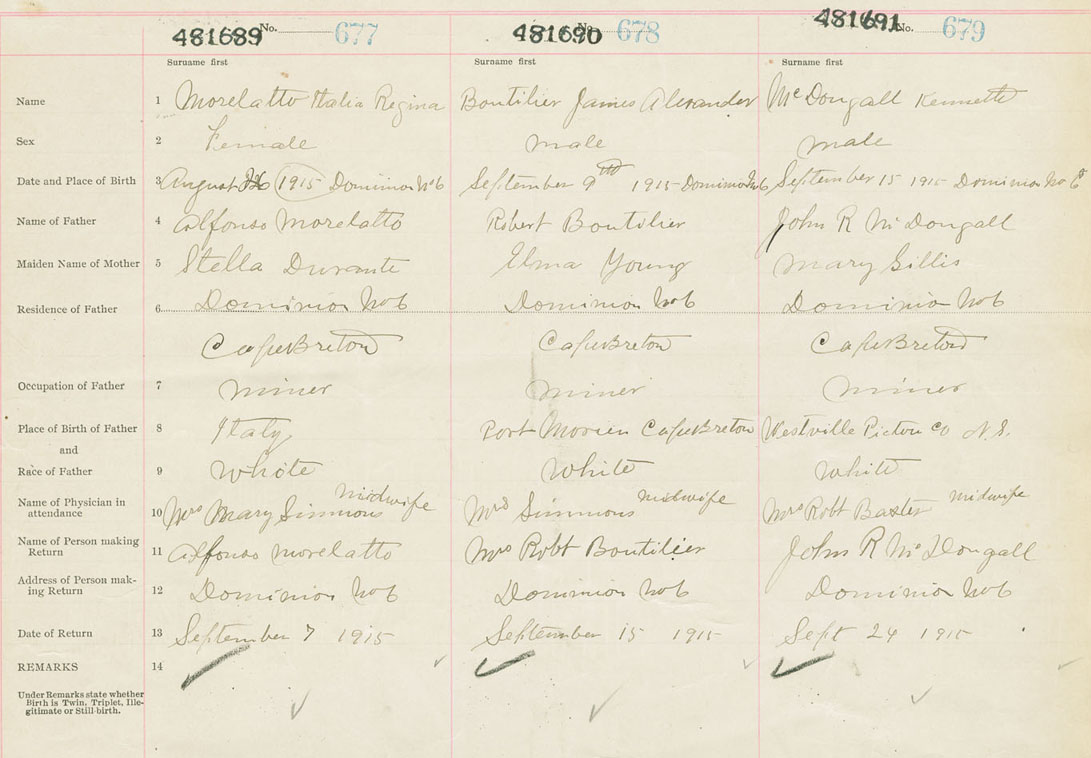 481689 No. 677 481690 No. 678 481691 No. 679
Surname first Surname first Surname first
Name 1 Morelatto Italia Regina Boutilier James Alexander McDougall Kenneth
Sex 2 Female male male
Date and Place of Birth 3 August 26 1915 Dominion No 6 September 9th 1915 Dominion No 6 September 15 1915 Dominion No 6
Name of Father 4 Alfonso Morelatto Robert Boutilier John R McDougall
Maiden Name of Mother 5 Stella Durante Elma Young Mary Gillis
Residence of Father 6 Dominion No 6 Dominion No 6 Dominion No 6
Cape Breton Cape Breton Cape Breton
Occupation of Father 7 miner miner miner
Place of Birth of Father 8 Italy Port Morien Cape Breton Westville Pictou Co N.S.
and
Race of Father 9 White White White
Name of Physician in attendance 10 Mrs Mary Simmons midwife Mrs Simmons midwife Mrs Robt Baxter midwife
Name of Person making Return 11 Alfonso Morelatto Mrs Robt Boutilier John R McDougall
Address of Person making Return 12 Dominion No 6 Dominion No 6 Dominion No 6
Date of Return 13 September 7 1915 September 15 1915 Sept 24 1915
REMARKS 14
Under Remarks state whether
Birth is Twin, Triplet, Ille-
gitimate or Still-birth.